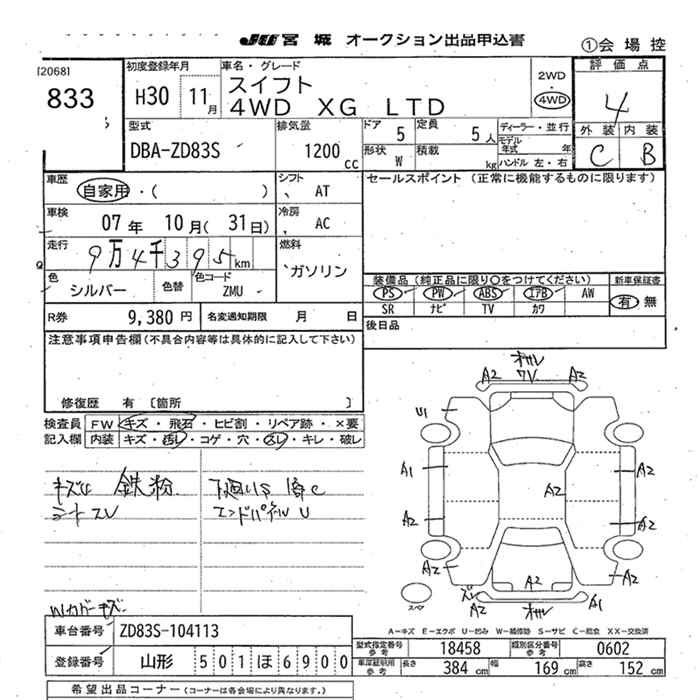 JU 宮城 オークション出品申込書
①会場控
[2068]
833
初度登録年月
H30 11月
車名・グレード
スイフト
4WD XG LTD
2WD
・
4WD
評価点
4
外装 内装
C B
型式
DBA-ZD83S
排気量
1200cc
ドア 5
定員 5人
形状 W
積載 kg
ディーラー・並行
モデル年式 年
ハンドル 左・右
車歴
自家用・( )
シフト AT
セールスポイント (正常に機能するものに限ります)
車検 07年 10月(31日)
冷房 AC
走行 9万4千395km
燃料 ガソリン
色 シルバー
色替
色コード ZMU
装備品(純正品に限り○をつけてください)
新車保証書
PS PW ABS エアB AW
有・無
SR ナビ TV カワ
R券 9,380円
名変通知期限 月 日
後日品
注意事項申告欄(不具合内容等は具体的に記入して下さい)
修復歴 有 [箇所 ]
検査員記入欄
FW キズ・飛石・ヒビ割・リペア跡・×要
内装 キズ・汚れ・コゲ・穴・スレ・キレ・破レ
キズ 鉄粉
シートスレ
下廻りS 錆C
エンドパネルU
Wカバーキズ
A2 A2
U1
A1
A2
A2
A2
A2
A2
A2
A2
A2
A1
スペア
A-キズ E-エクボ U-凹み W-補修跡 S-サビ C-腐食 XX-交換済
車台番号 ZD83S-104113
登録番号 山形 501 ほ 6900
型式指定番号 参考 18458
類別区分番号 参考 0602
車庫証明用 参考 長さ 384cm 幅 169cm 高さ 152cm
希望出品コーナー(コーナーは各会場により異なります。)